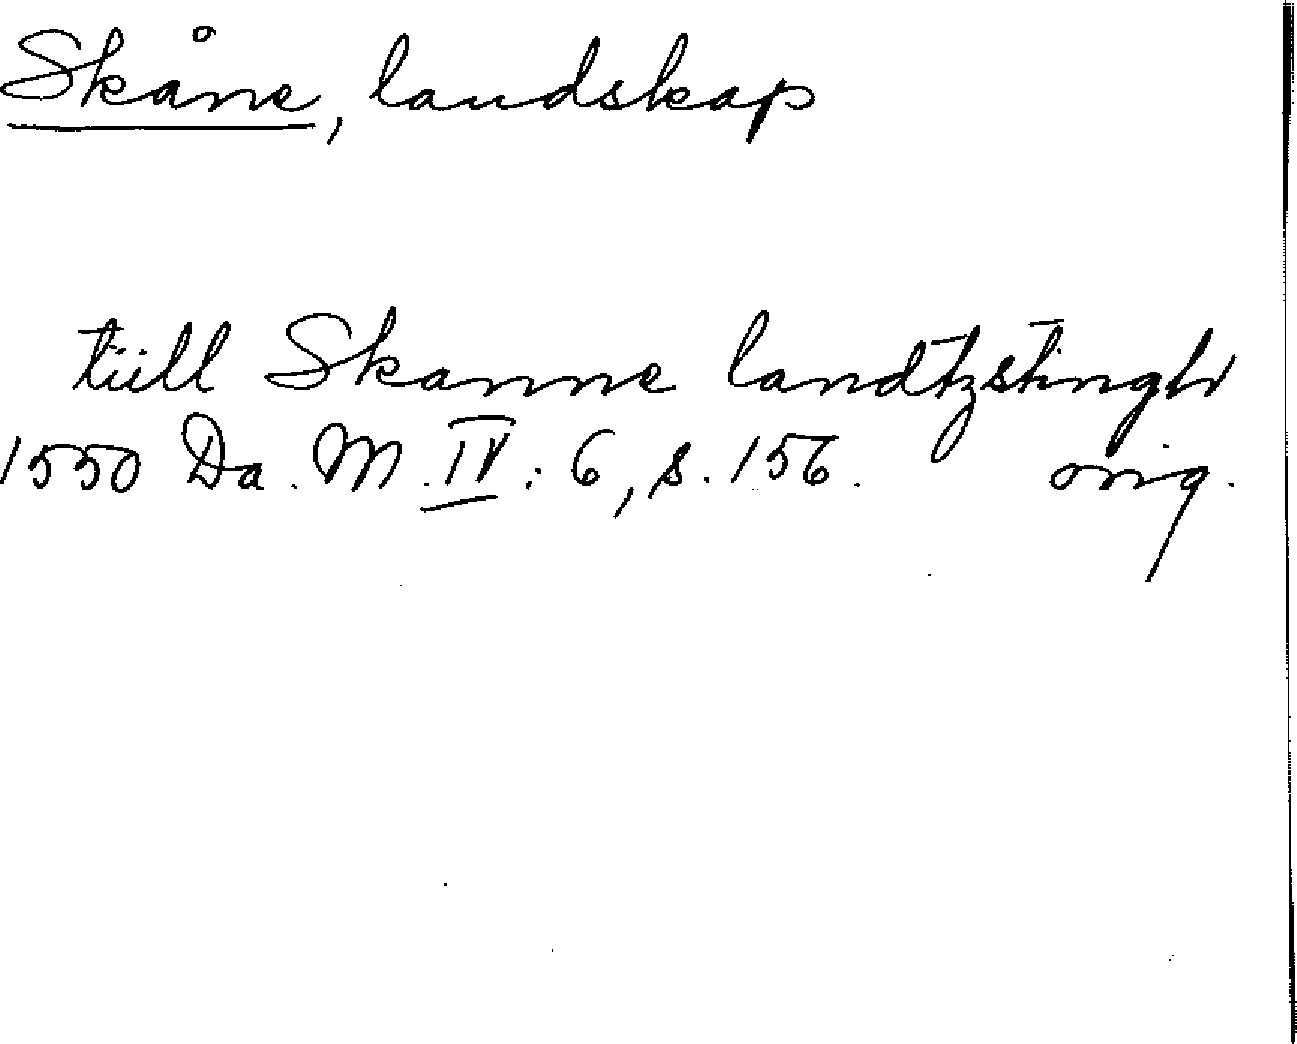 Skåne, landskap
tiill Skanne landtzstingh
1550 Da. M. IV: 6, s. 156. orig.